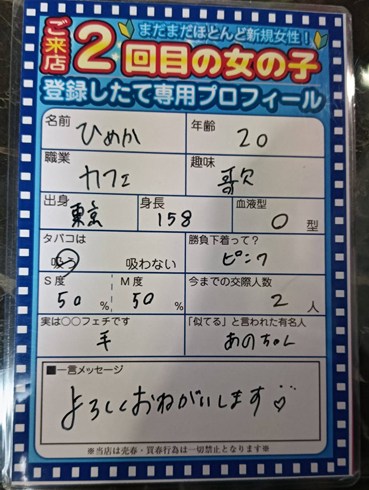 まだまだほとんど新規女性!
ご来店2回目の女の子
登録したて専用プロフィール
名前 ひめか 年齢 20
職業 カフェ 趣味 歌
出身 東京 身長 158 血液型 O 型
タバコは 吸う 吸わない 勝負下着って? ピンク
S度 50 % M度 50 % 今までの交際人数 2 人
実は○○フェチです 手 「似てる」と言われた有名人 あのちゃん
■一言メッセージ
よろしくおねがいします♡
※当店は売春・買春行為は一切禁止となります※